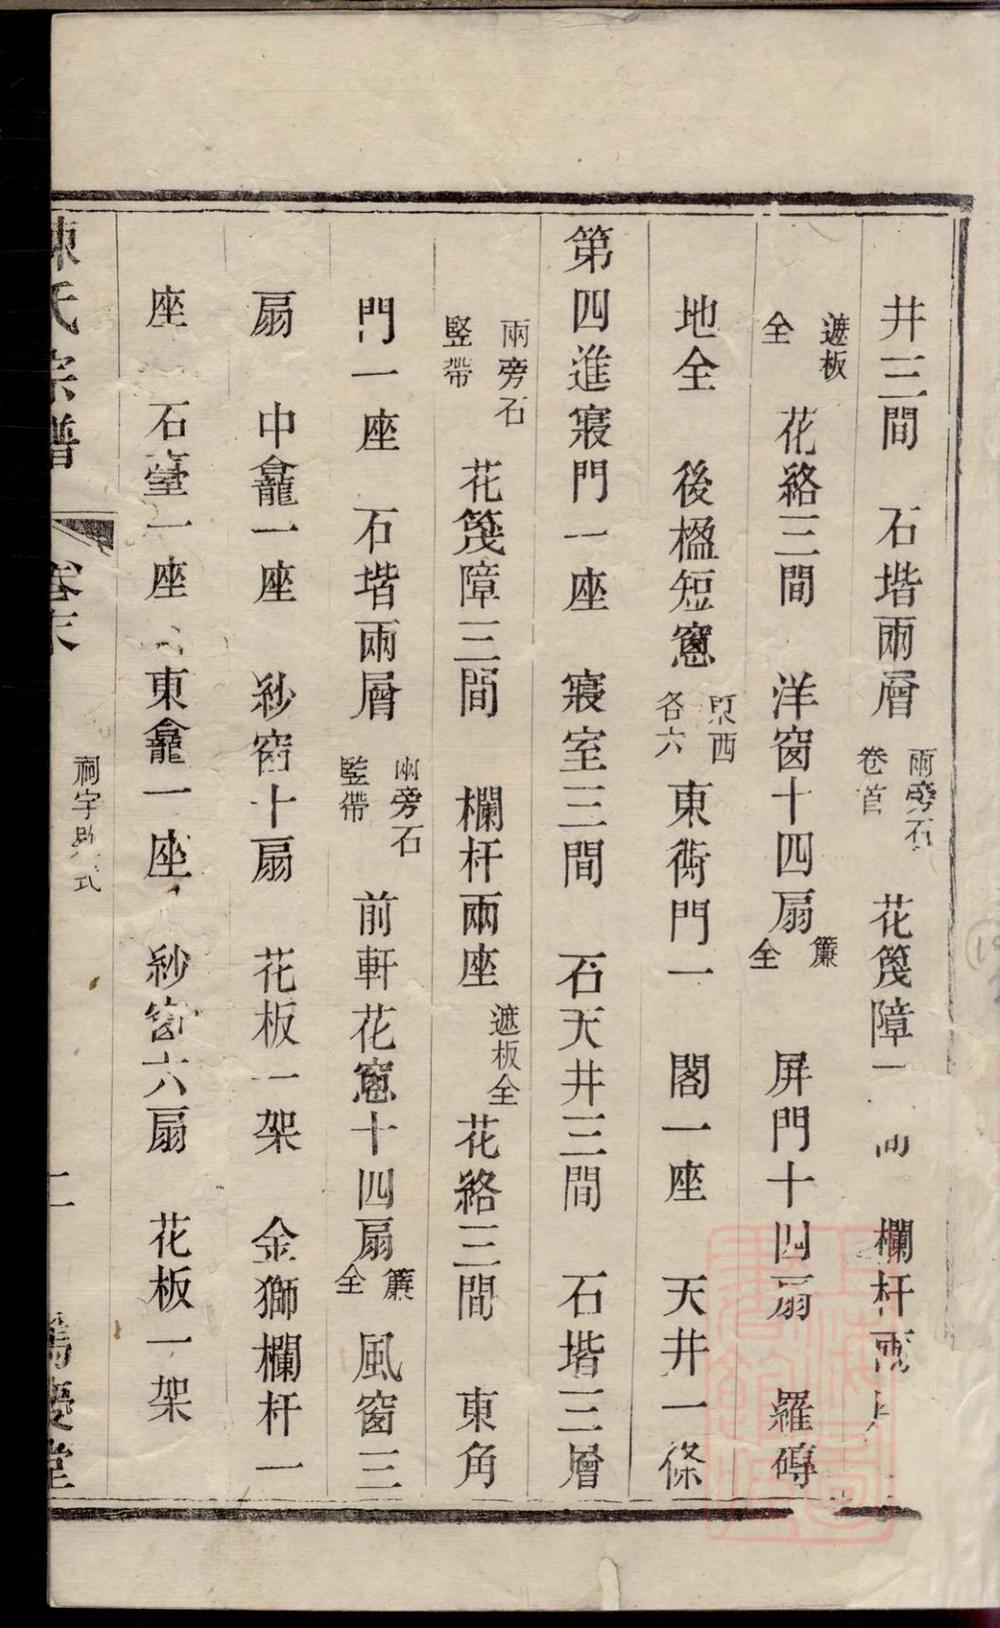 井三間　石堦兩層兩旁石卷首　花篾障一間　欄杆兩
遮板全　花絡三間　洋窗十四扇簾全　屏門十四扇　羅磚
地全　後楹短窻東西各六　東衖門一　閣一座　天井一條
第四進寢門一座　寢室三間　石天井三間　石堦三層
兩旁石豎帶　花篾障三間　欄杆兩座遮板全　花絡三間　東角
門一座　石堦兩層兩旁石豎帶　前軒花窻十四扇簾全　風窗三
扇　中龕一座　紗窗十扇　花板一架　金獅欄杆一
座　石臺一座　東龕一座　紗窗六扇　花板一架
陳氏宗譜　卷末　祠宇　式　二　慶堂